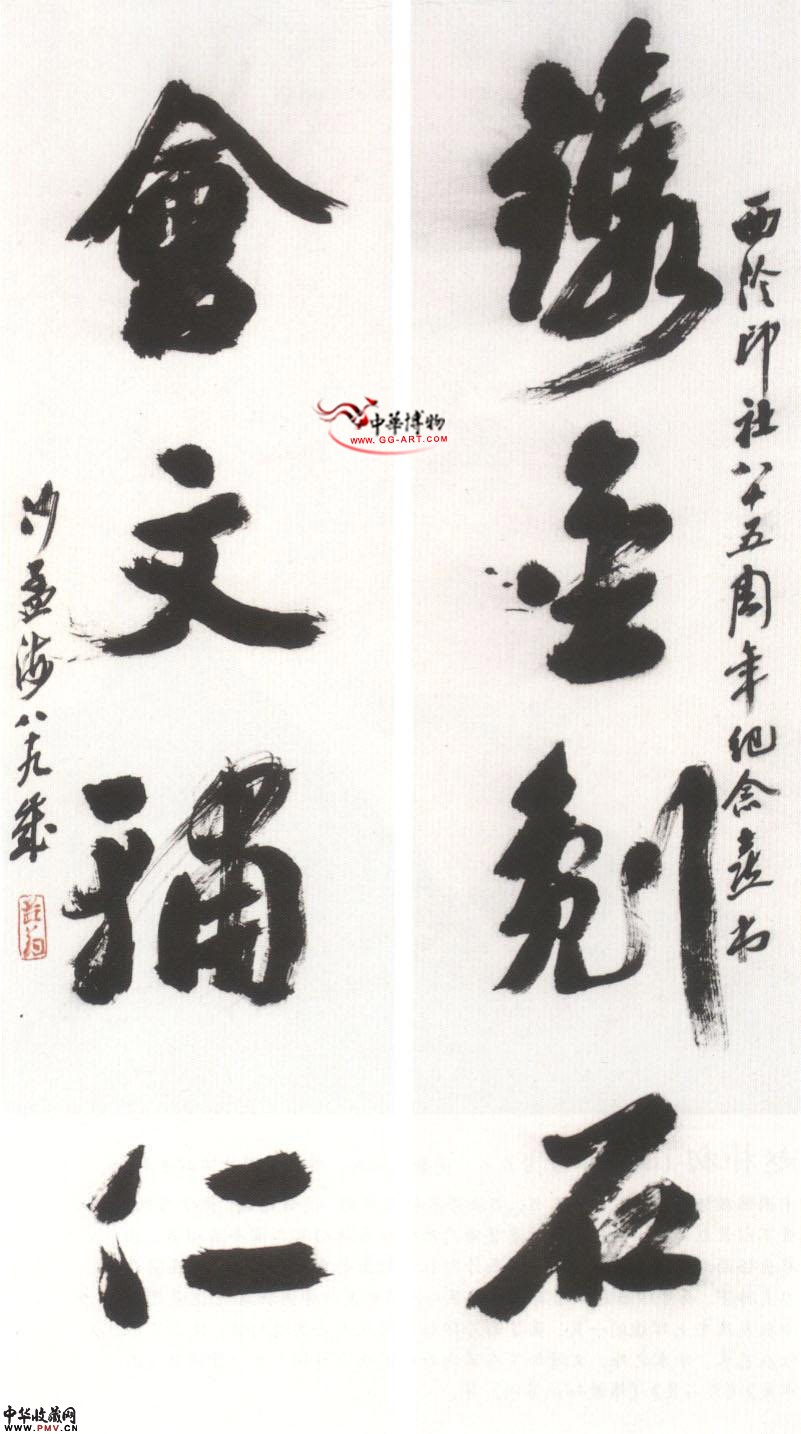 西泠印社八十五周年紀念憙书
鐫金劖石
會文輔仁
沙孟海八十九歲
中華博物
WWW.GG-ART.COM
中华收藏网
WWW.PMV.CN